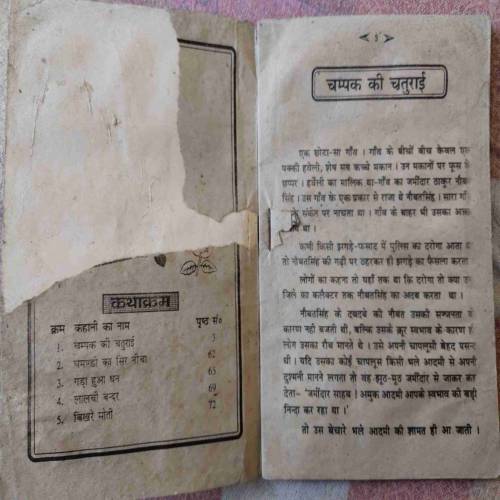 कथाक्रम
क्रम कहानी का नाम पृष्ठ सं०
1. चम्पक की चतुराई 3
2. घमण्डी का सिर नीचा 62
3. गड़ा हुआ धन 65
4. लालची बन्दर 69
5. बिखरे मोती 72
चम्पक की चतुराई
एक छोटा-सा गाँव । गाँव के बीचों बीच केवल एक
पक्की हवेली, शेष सब कच्चे मकान । उन मकानों पर फूस के
छप्पर । हवेली का मालिक था-गाँव का जमींदार ठाकुर नौबत
सिंह । उस गाँव के एक प्रकार से राजा थे नौबतसिंह । सारा गाँव
संकेत पर नाचता था । गाँव के बाहर भी उसका
था ।
कभी किसी झगड़े-फसाद में पुलिस का दरोगा आता
तो नौबतसिंह की गढ़ी पर ठहरकर ही झगड़े का फैसला करता
लोगों का कहना तो यहाँ तक था कि दरोगा तो क्या उस
जिले का कलैक्टर तक नौबतसिंह का अदब करता था ।
नौबतसिंह के दबदबे की नौबत उसकी सज्जनता के
कारण नहीं बजती थी, बल्कि उसके क्रूर स्वभाव के कारण ही
लोग उसका रौब मानते थे । उसे अपनी चापलूसी बेहद पसन्द
थी । यदि उसका कोई चापलूस किसी भले आदमी से अपनी
दुश्मनी मानने लगता तो वह झूठ-मूठ जमींदार से जाकर कह
देता- 'जमींदार साहब ! अमुक आदमी आपके स्वभाव की बड़ी
निन्दा कर रहा था ।'
तो उस बेचारे भले आदमी की शामत ही आ जाती ।